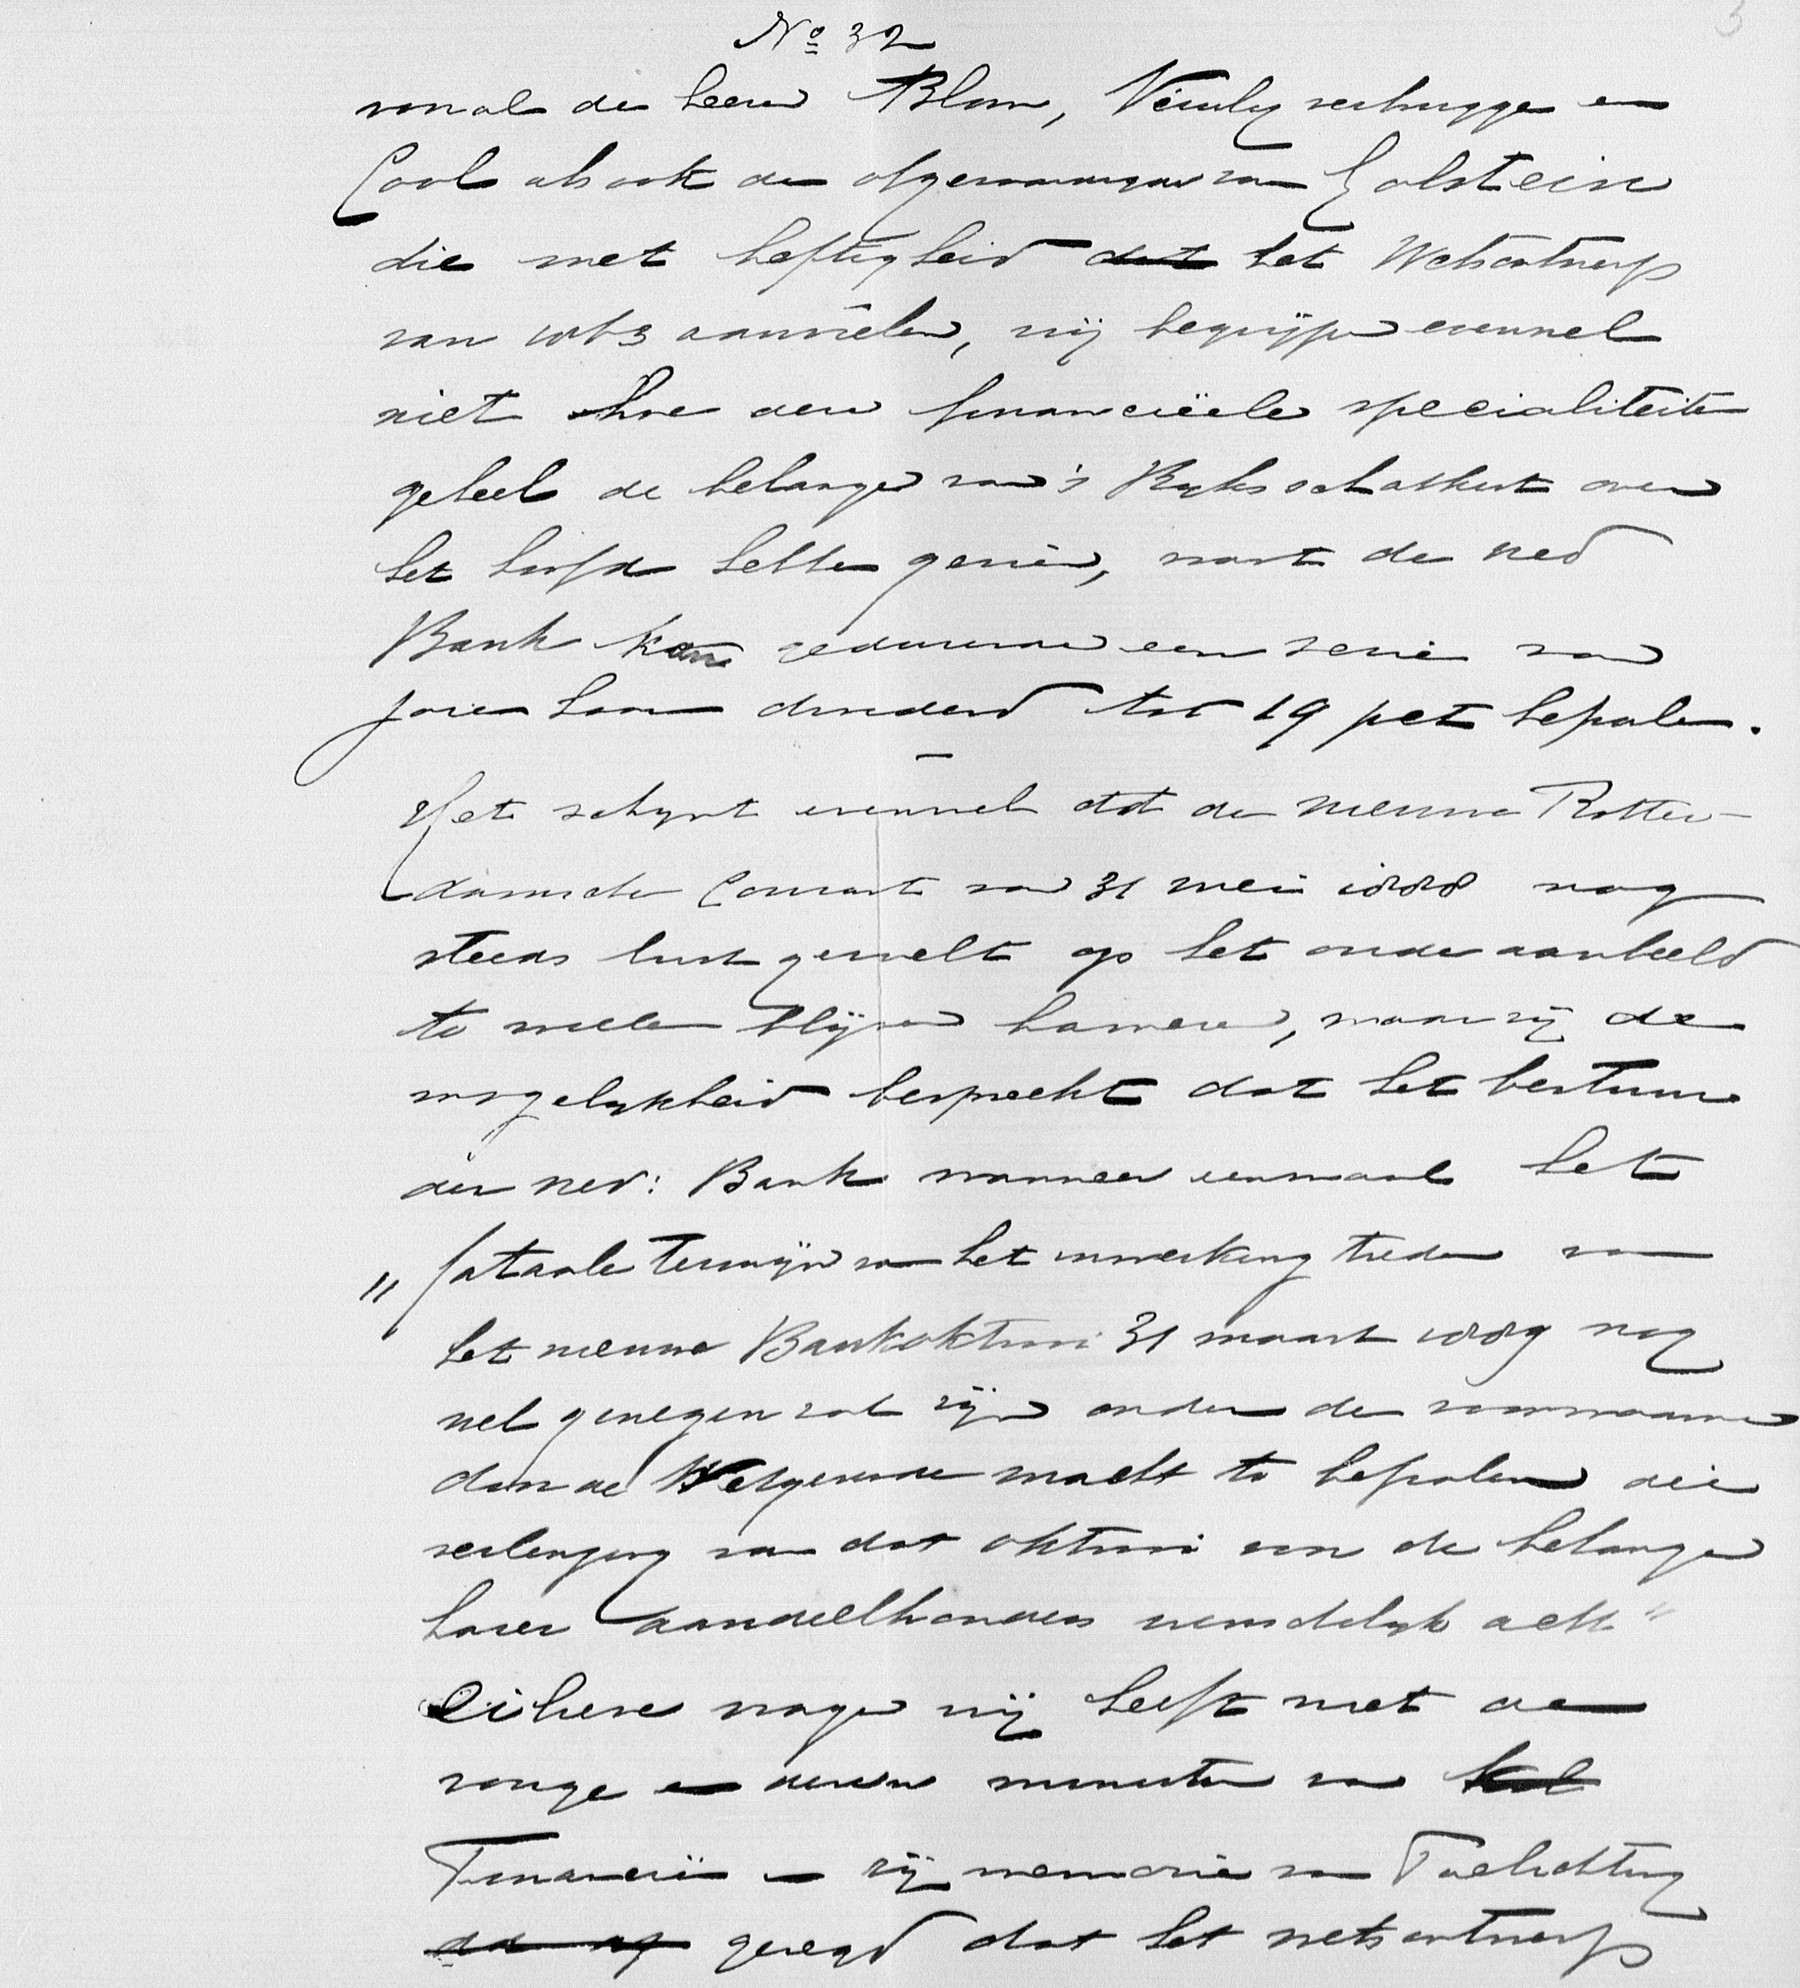 No 32
vooral de heeren Blom, Viruly verbrugge en
Cool als ook de afgevaardigde van Golstein
die met heftigheid dat het Wetsontwerp
van 1863 aanvielen, wij begrijpen evenwel
niet hoe deze financieële specialiteiten
geheel de belangen van 's Rijks schatkist over
het hoofd hebben gezien, want de Ned
Bank kan gedurende een serie van
jaren haar dividend tot 19 pct bepalen.
Het schynt evenwel dat de nieuwe Rotter-
damsche Courant van 31 mei 1888 nog
steeds lust gevoelt op het oude aanbeeld
te willen blijven hameren, waar zij de
mogelykheid bespreekt dat het bestuur
der Ned: Bank wanneer eenmaal het
" fataale Termijn van het inwerking treden van
het nieuwe Bankoktrooi 31 maart 1889 nog
wel genegen zal zijn onder de voorwaarden
door de Wetgevende macht te bepalen die
verlenging van dat oktrooi aan de belangen
harer aandeelhouders wenschelyk acht "
Eilieve vragen wij heeft niet de
vorige minister van
Financiën in zijn memorie van Toelichting
gezegd dat het wetsontwerp